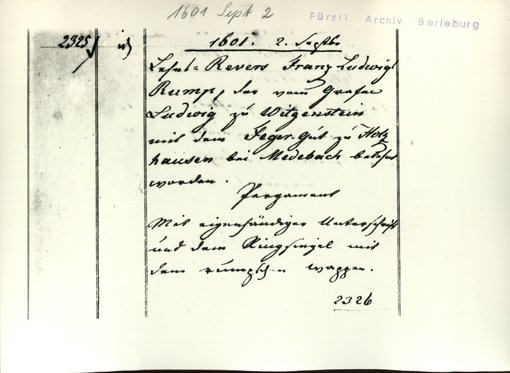 1601 Sept 2
Fürstl. Archiv Berleburg
2325
1601. 2. Septbr
Lehns-Revers Franz Ludwigs
Rump, der vom Grafen
Ludwig zu Witgenstein
mit dem Jeger-Gut zu Holz
hausen bei Medebach belehnt
worden.
Pergament
Mit eigenhändiger Unterschrift
und dem Ringsiegel mit
dem rumpschen Wappen.
2326